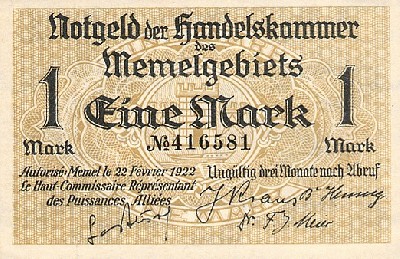 Notgeld der Handelskammer
des
Memelgebiets
1 Eine Mark 1
Mark №416581 Mark
Autorisé-Memel le 22 Février 1922
Le Haut Commissaire Représentant
des Puissances Alliées
Ungültig drei Monate nach Abruf